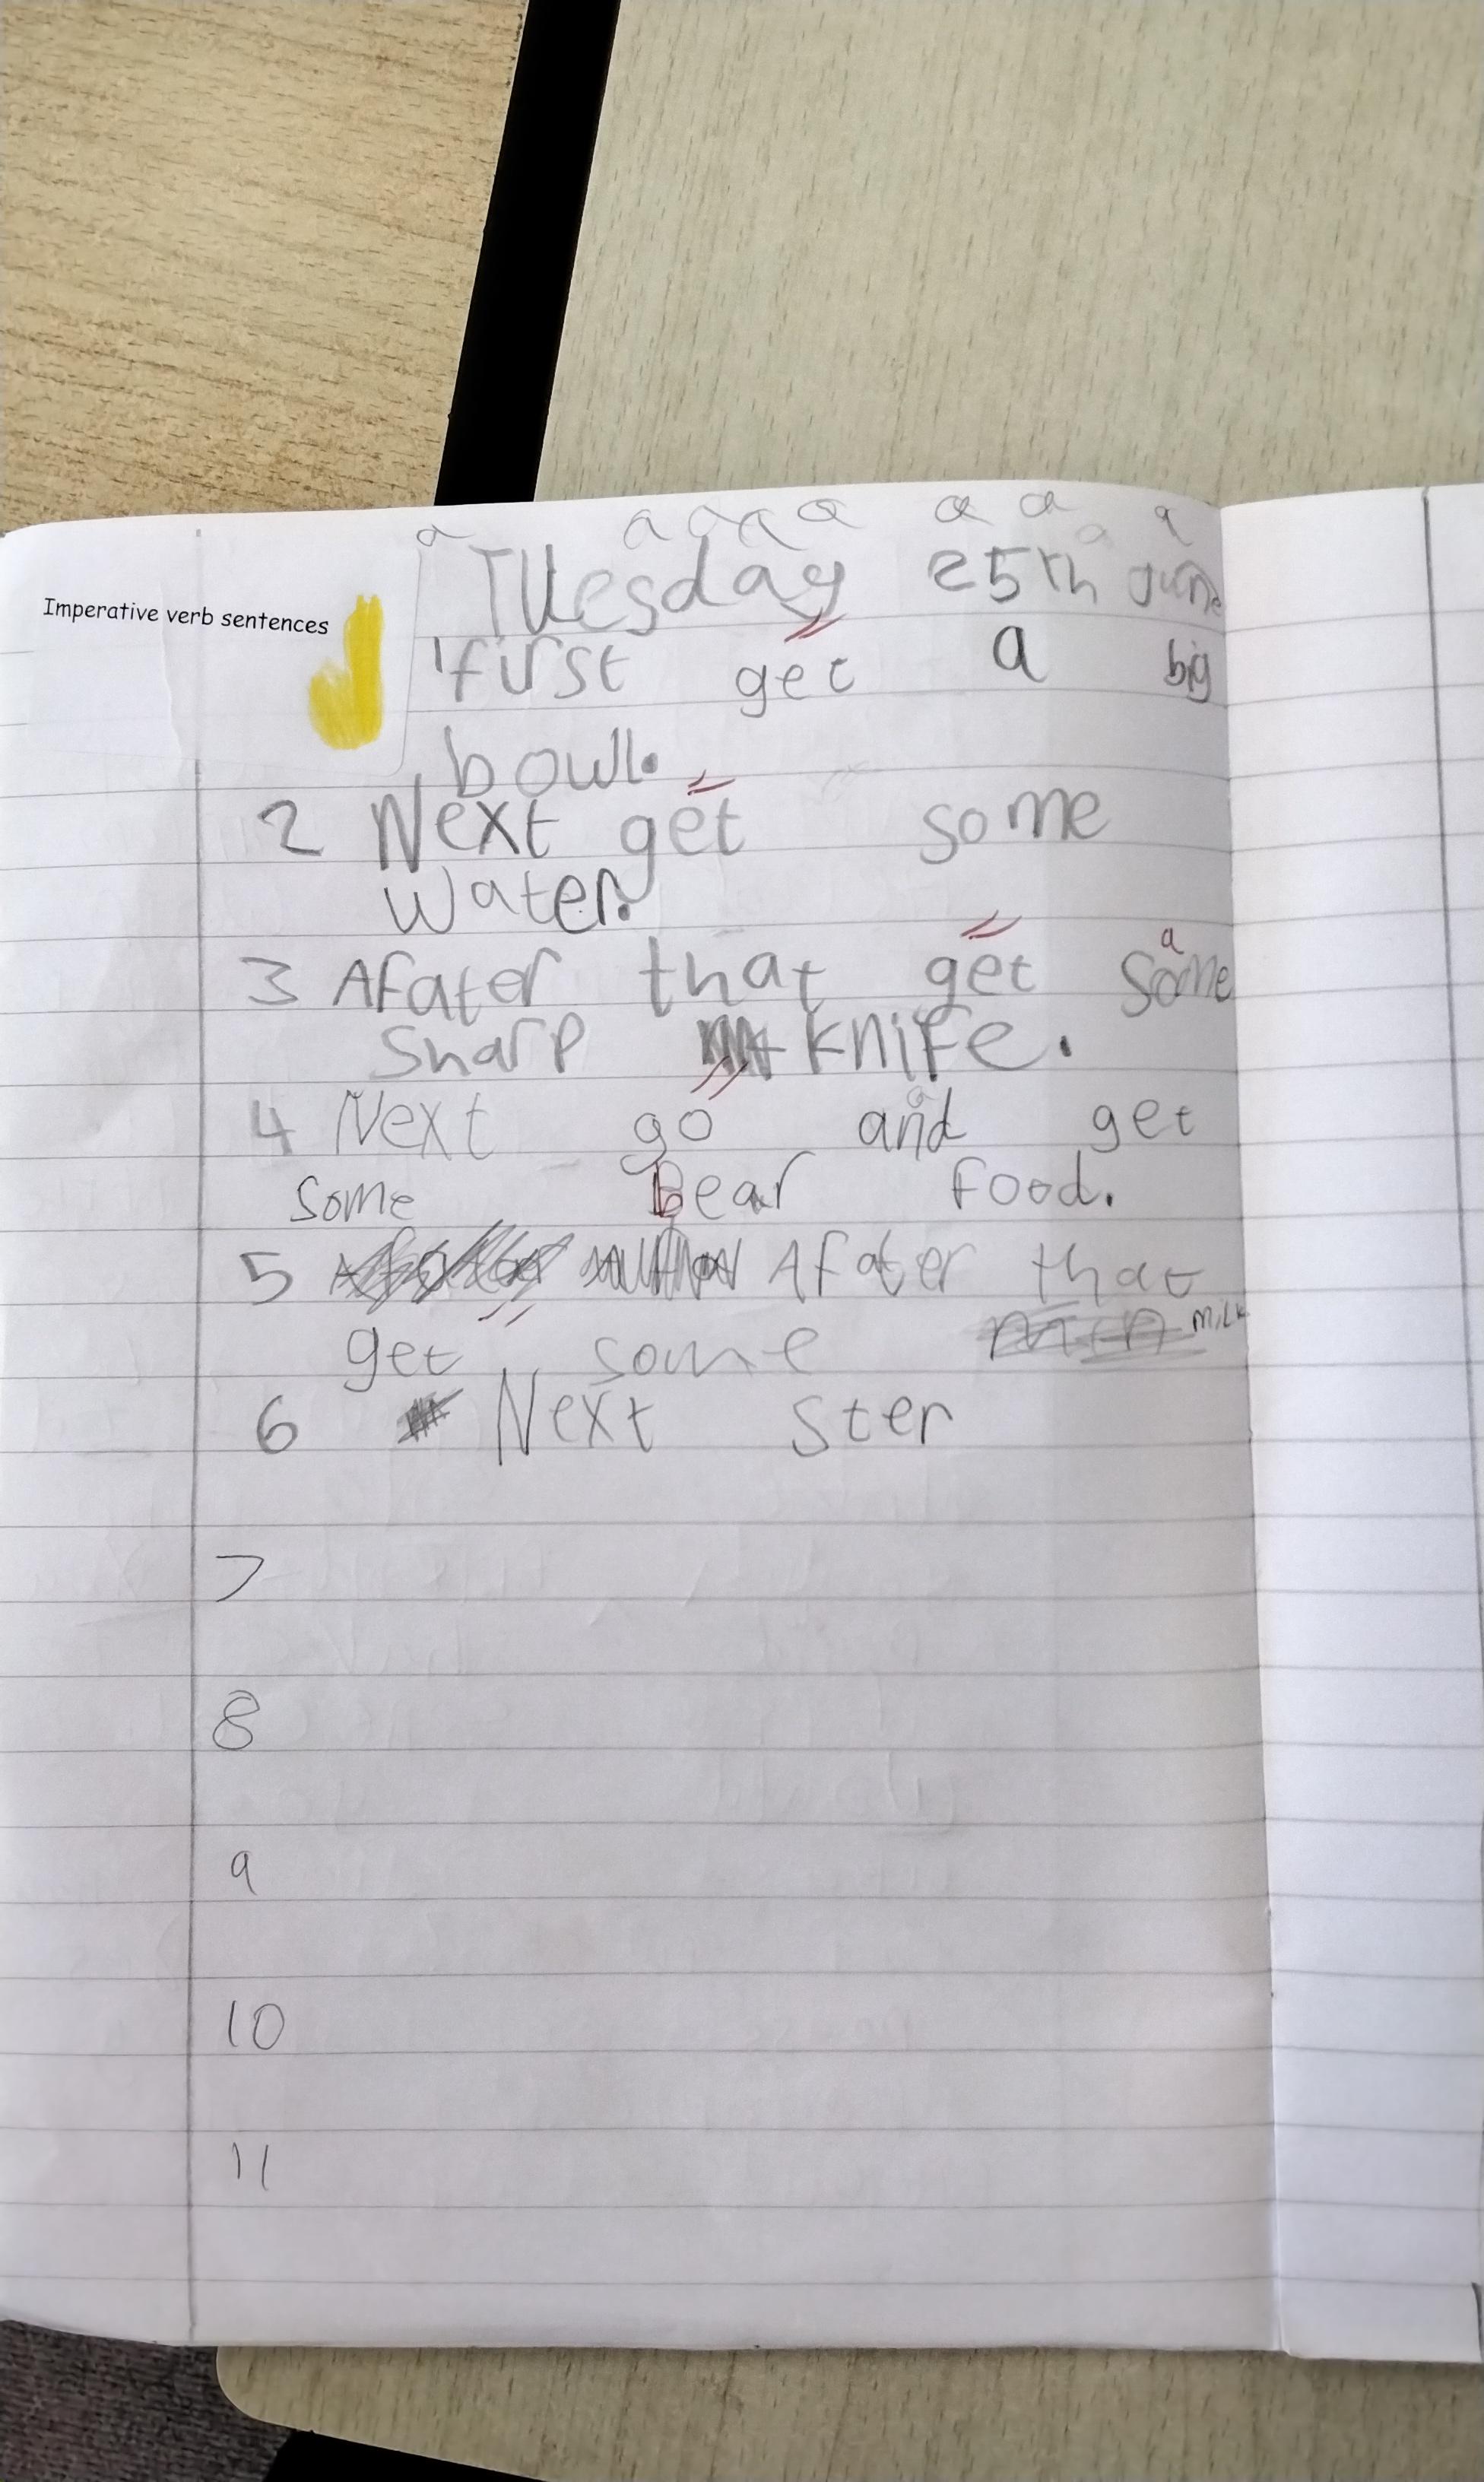 a a a a a a a a a
Imperative verb sentences
Tuesday 25th June
1 first get a big
bowl.
2 Next get some
water.
a
3 Afater that get some
sharp knife.
4 Next go and get
some Bear food.
5 Afater that
get some milk
6 Next ster
7
8
9
10
11